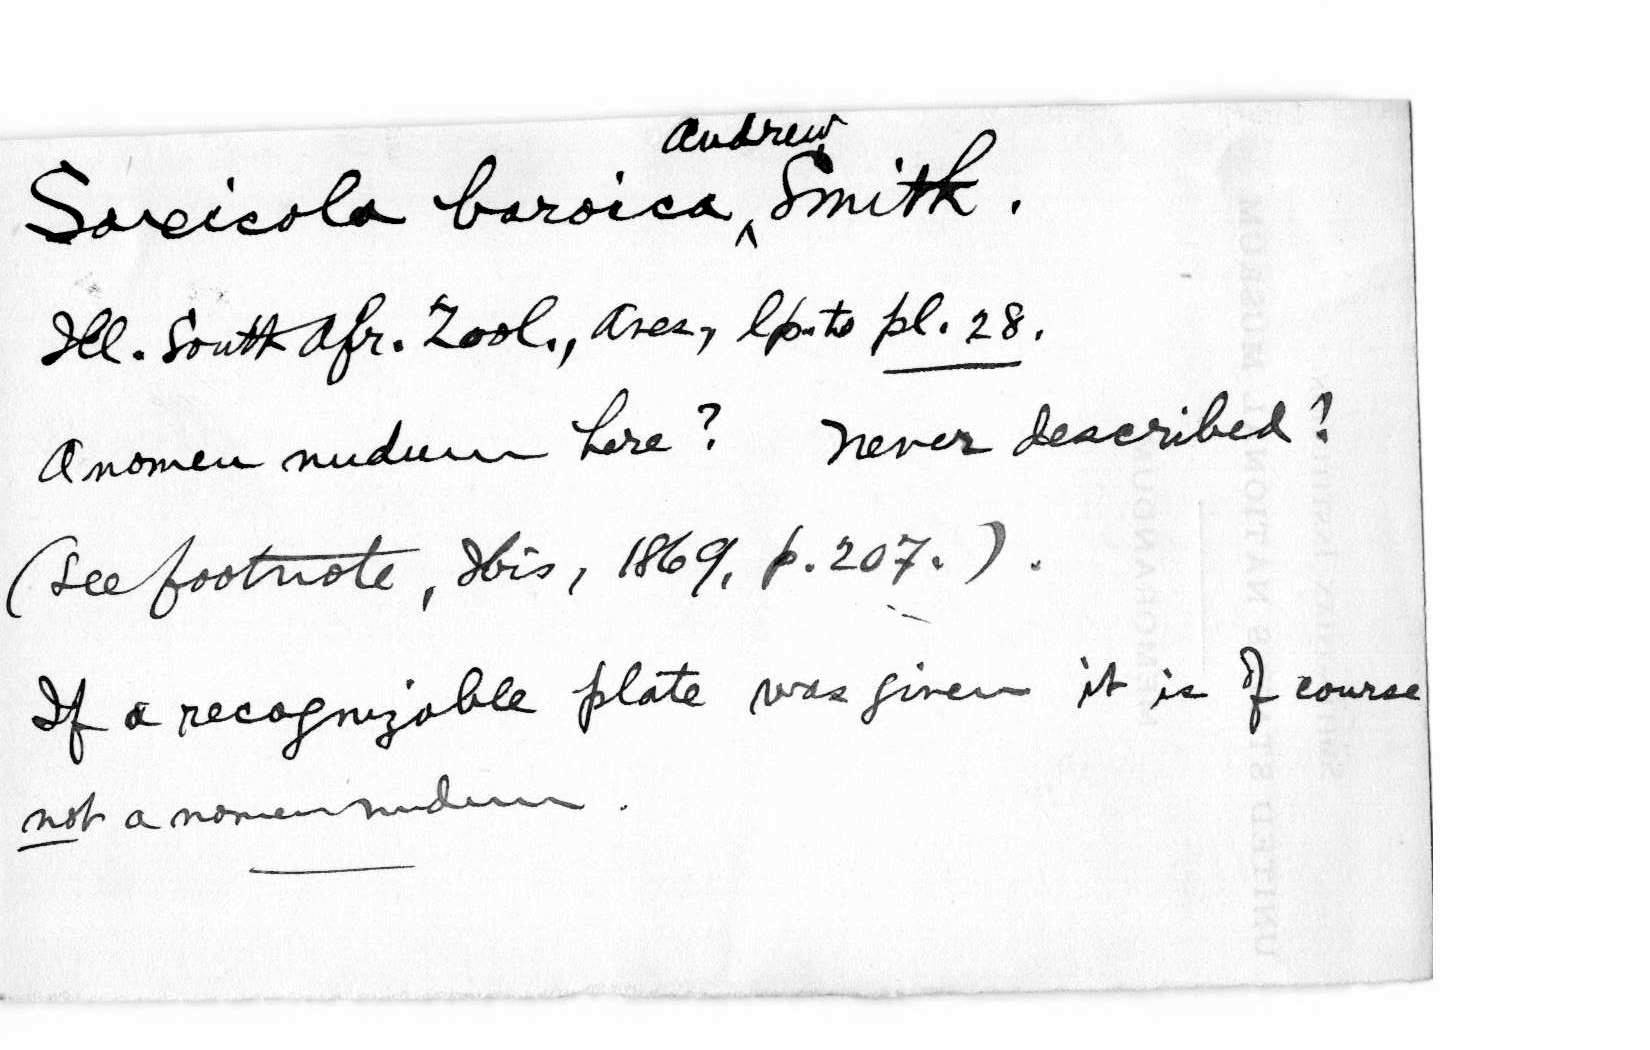 Andrew
Saxicola baroica, ‸ Smith.
Ill. South Afr. Zool., Aves, lp. to pl. 28.
A nomen nudum here? Never described?
(See footnote, Ibis, 1869, p. 207.).
If a recognizable plate was given it is of course
not a nomen nudum.